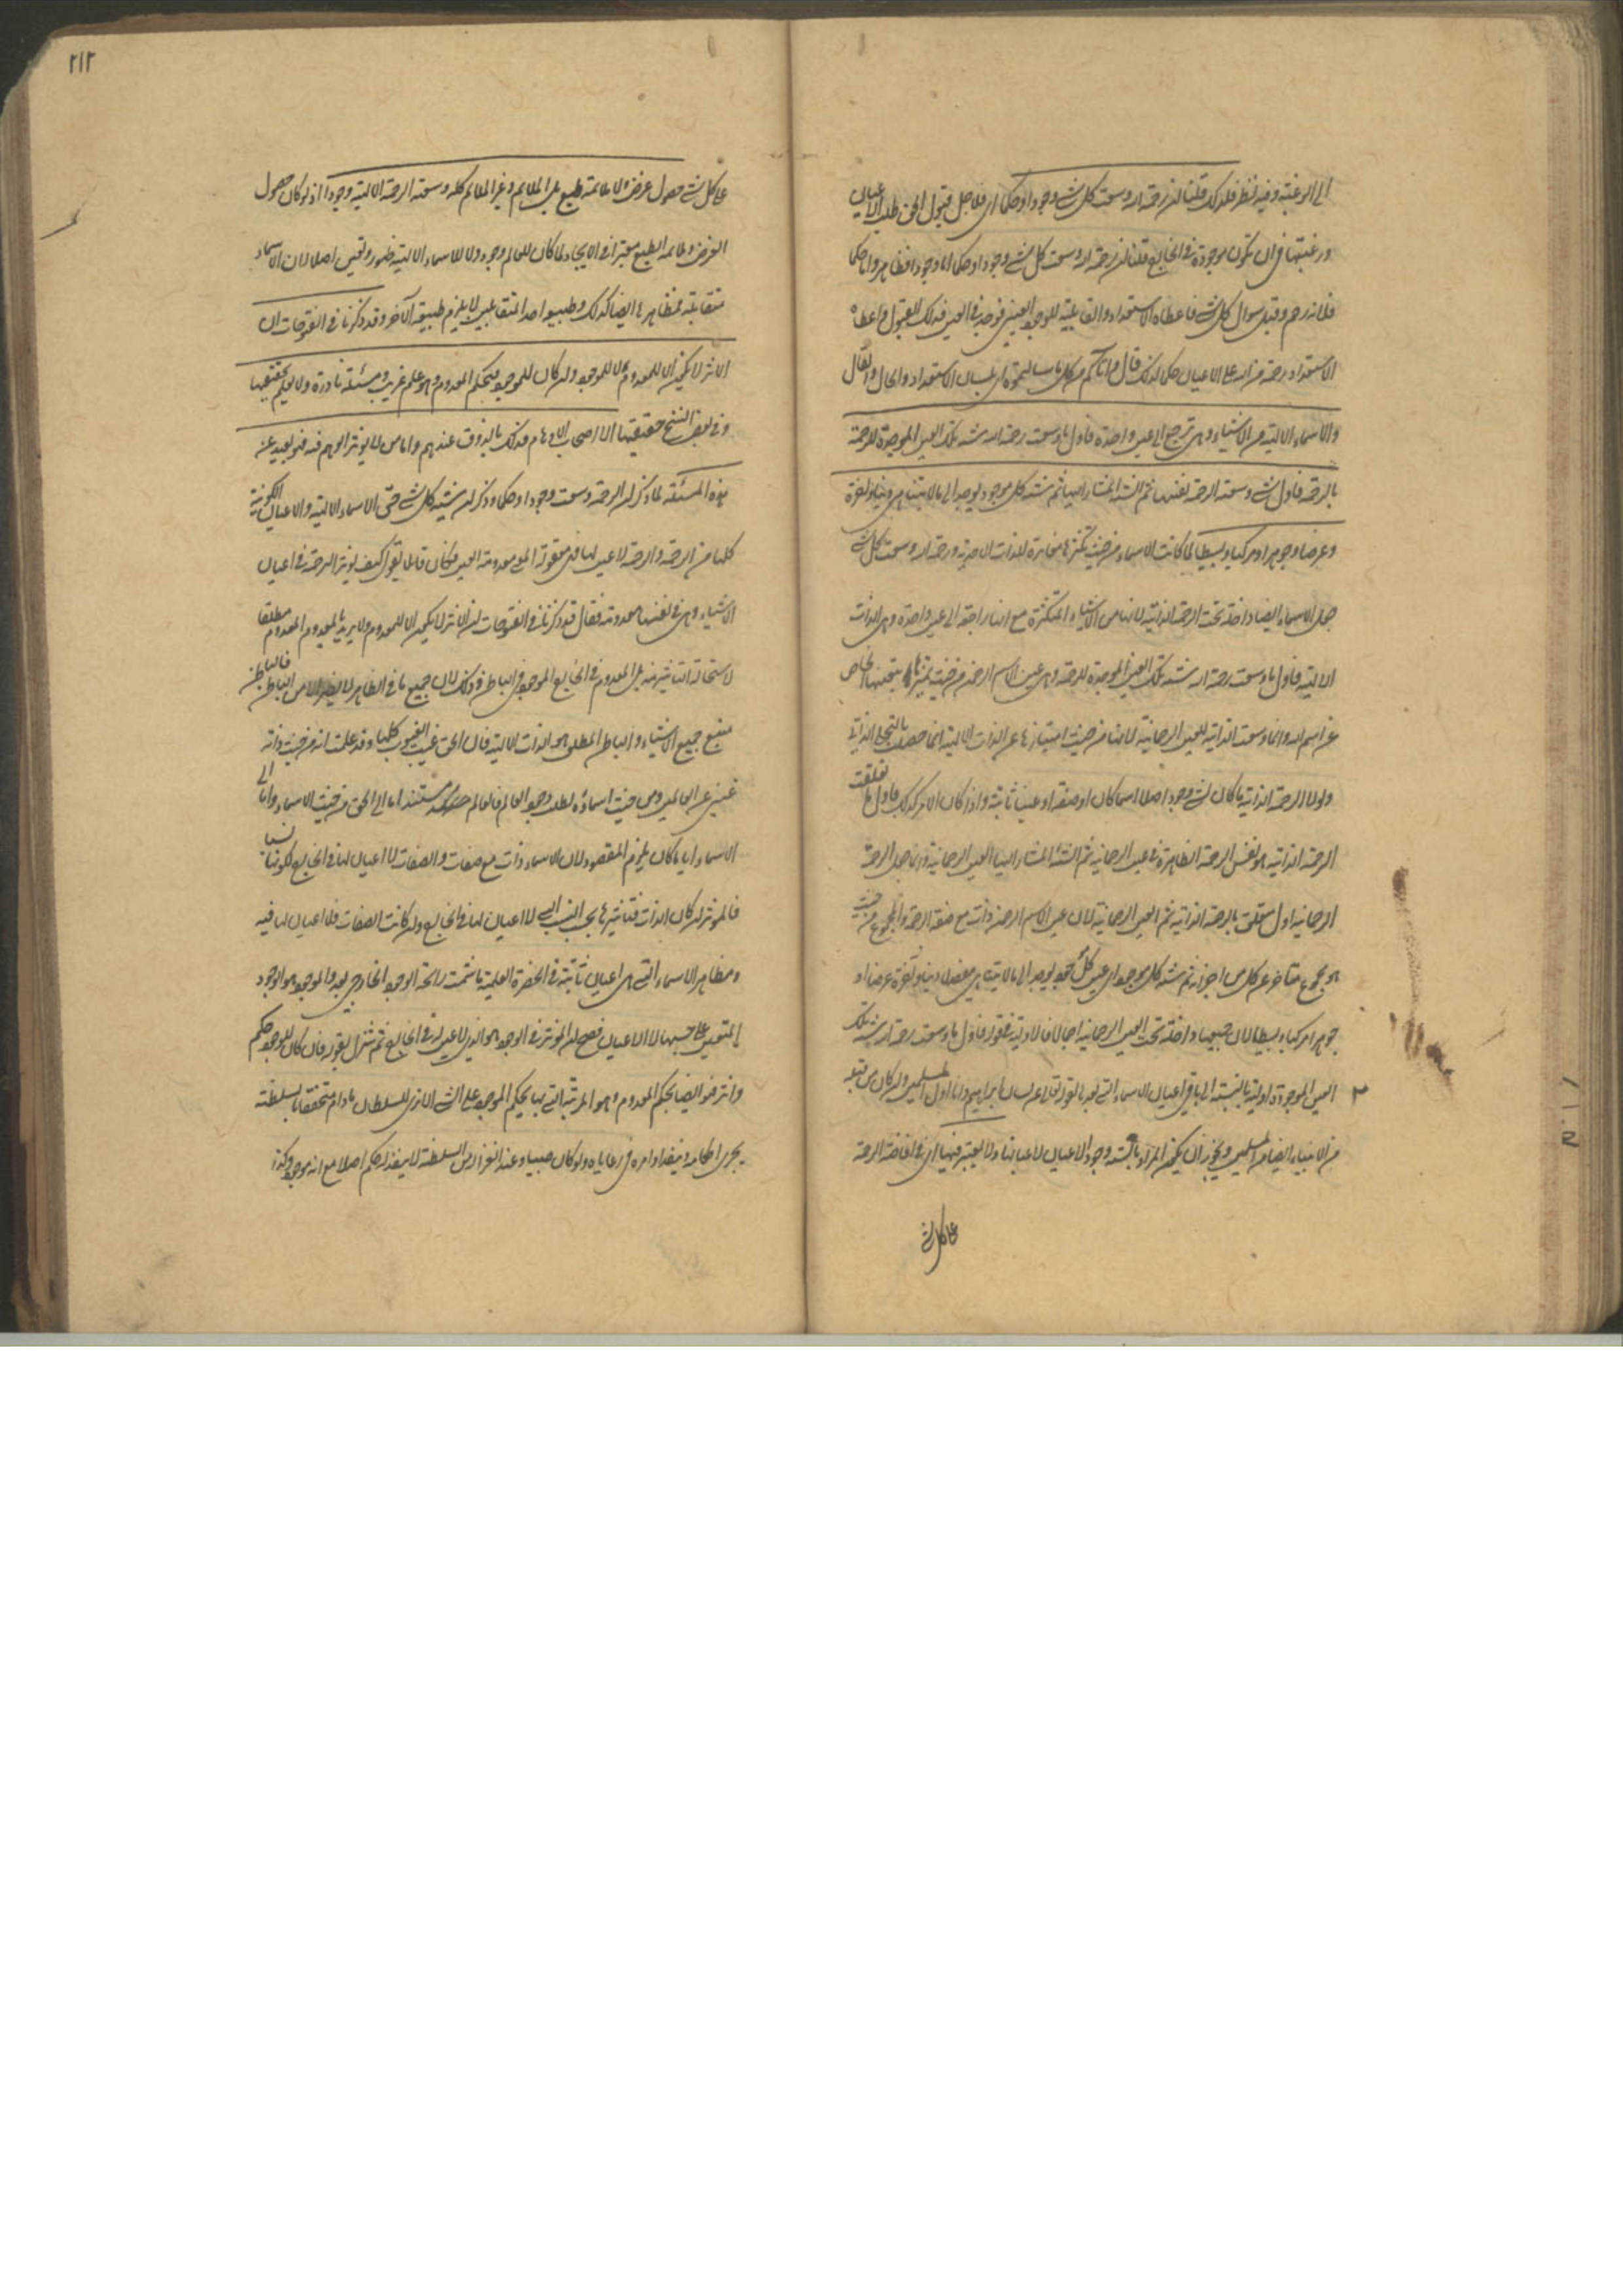 الى الرغبة وفيه نظر فلذلك قلنا ان رحمة الله وسعت كل شئ وجودا وحكما اى فلاجل قبول الحق طلب الاعيان
ورغبتها فى ان تكون موجودة فى الخارج قلنا ان رحمة الله وسعت كل شئ وجودا وحكما اما وجودا فظاهر واما حكما
فلانه رحم وقبل سوال كل شئ فاعطاه الاستعداد والقابلية للوجود العينى فوجد فى العين فذلك القبول واعطاه
الاستعداد رحمة من الله على الاعيان حكما لذلك قال وآتاكم من كل ما سالتموه اى بلسان الاستعداد والحال والقال
والاسماء الالهية من الاشياء وهى ترجع الى عين واحدة فاول ما وسعت رحمة الله شيئية تلك العين الموجدة للرحمة
بالرحمة فاول شئ وسعته الرحمة نفسها ثم الشيئية المشار اليها ثم شيئية كل موجود يوجد الى ما لا يتناهى دنيا وآخرة
وعرضا وجوهرا ومركبا وبسيطا لما كانت الاسماء من حيث تكثرها مغايرة للذات الاحدية ورحمة الله وسعت كل شئ
جعل الاسماء ايضا داخلة تحت الرحمة الذاتية لانها من الاشياء المتكثرة مع انها راجعة الى عين واحدة وهى الذات
الالهية فاول ما وسعت رحمة الله شيئية تلك العين الموجدة للرحمة وهى عين الاسم الرحمن من حيث تميزها بتعينها الخاص
عن اسم الله وانما وسعت الذاتية للعين الرحمانية لانها من حيث امتيازها عن الذات الالهية انما حصلت بالتجلى الذاتى
ولولا الرحمة الذاتية ما كان لشئ وجود اصلا اسما كان او صفة او عينا ثابتة واذا كان الامر كذلك فاول ما تعلقت
الرحمة الذاتية هو نفس الرحمة الظاهرة فى عين الرحمانية ثم الشيئية المشار اليها العين الرحمانية وانما جعل الرحمة
الرحمانية اول متعلق بالرحمة الذاتية ثم العين الرحمانية لان عين الاسم الرحمن ذات مع صفة الرحمة والمجموع من حيث
هو مجموع متاخر عن كل من اجزائه ثم شيئية كل موجود اى عين كل موجود يوجد الى ما لا يتناهى مفصلا دنيا وآخرة عرضا او
جوهرا مركبا وبسيطا لان جميعها داخلة تحت العين الرحمانية اجمالا فالاولية فى قوله فاول ما وسعت رحمة الله شيئية تلك
العين الموجودة اولية بالنسبة الى باقى اعيان الاسماء التى بعد بقوله تعالى عن لسان ابراهيم وانا اول المسلمين وان كان من قبله
من الانبياء ايضا من المسلمين ويجوز ان يكون المراد بالشيئية وجود الاعيان لا عيانها ولا يعتبر فيها اى فى افاضة الرحمة
على كل شئ
٢١٢
على كل شئ حصول غرض ولا ملائمة طبع بل الملائم وغير الملائم كله وسعته الرحمة الالهية وجودا اذ لو كان حصول
الغرض وملائمة الطبع معتبرا فى الايجاد لما كان للعالم وجود ولا للاسماء الالهية ظهور وتعين اصلا لان الاسماء
متقابلة فمظاهرها ايضا كذلك وطبيعة احد المتقابلين لا يلزم طبيعة الآخر وقد ذكرنا فى الفتوحات ان
الاثر لا يكون الا للمعدوم لا للموجود وان كان للموجود فبحكم المعدوم وهو علم غريب ومسئلة نادرة ولا يعلم تحقيقها
وفى بعض النسخ حقيقتها الا اصحاب الاوهام فذلك بالذوق عندهم واما من لا يوثر الوهم فيه فهو بعيد عن
هذه المسئلة لما ذكر ان الرحمة وسعت وجودا وحكما وذكر ان شيئية كل شئ حتى الاسماء الالهية والاعيان الكونية
كلها من الرحمة والرحمة لا عين لها فهى معقولة المعنى معدومة العين فكان قائلا يقول كيف يوثر الرحمة فى اعيان
الاشياء وهى فى نفسها معدومة فقال قد ذكرنا فى الفتوحات ان الاثر لا يكون الا للمعدوم ولا يريد بالمعدوم المعدوم مطلقا
لاستحالة التاثير منه بل المعدوم فى الخارج الموجود فى الباطن وذلك لان جميع ما فى الظاهر لا يظهر الا من الباطن فالباطن
منبع جميع الاشياء والباطن المطلق هو الذات الالهية فان الحق غيب الغيوب كلها وقد علمت انه من حيث ذاته
غنى عن العالمين ومن حيث اسمائه يطلب وجود العالم فالعالم مستند اما الى الحق من حيث الاسماء واما الى
الاسماء ايا ما كان يلزم المقصود لان الاسماء ذات مع صفات والصفات لا اعيان لها فى الخارج لكونها نسبا
فالموثر ان كان الذات فتاثيرها بحسب النسب التى لا اعيان لها فى الخارج وان كانت الصفات فلا اعيان لها فيه
ومظاهر الاسماء التى هى اعيان ثابتة فى الحضرة العلمية ما شمت رائحة الوجود الخارجى بعد والموجود هو الوجود
المتعين على حسبها لا الاعيان فصح ان الموثر فى الوجود هو الذى لا عين له فى الخارج ثم تنزل بقوله فان كان للموجود حكم
واثر فهو ايضا بحكم المعدوم وهو المرتبة التى بها يحكم الموجود على الشئ الا ترى السلطان ما دام متحققا بالسلطنة
يجرى احكامه وينفذ اوامره فى رعاياه ولو كان صبيا وعند انعزاله من السلطنة لا ينفذ له حكم اصلا مع انه موجود وكذا